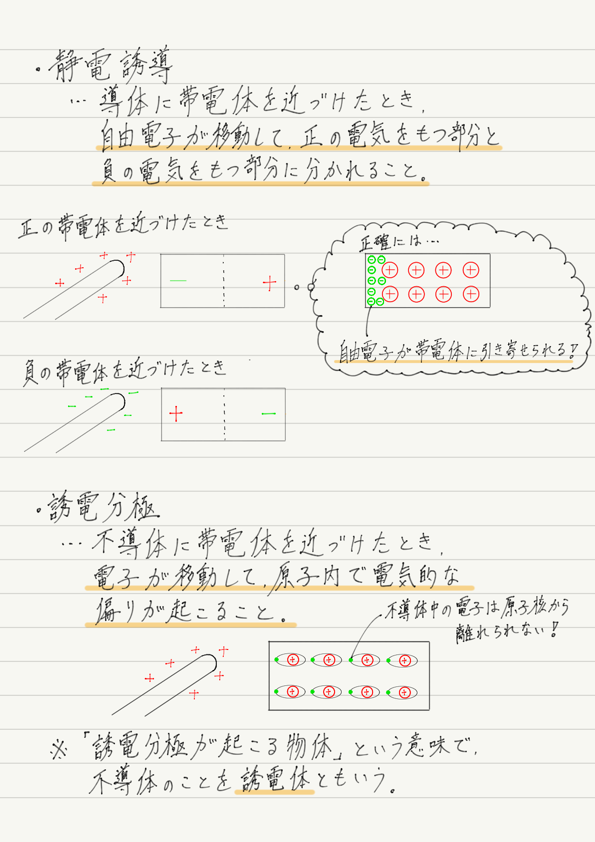 ・静電誘導
… 導体に帯電体を近づけたとき,
自由電子が移動して,正の電気をもつ部分と
負の電気をもつ部分に分かれること。
正の帯電体を近づけたとき
正確には…
自由電子が帯電体に引き寄せられる!
負の帯電体を近づけたとき
・誘電分極
… 不導体に帯電体を近づけたとき,
電子が移動して,原子内で電気的な
偏りが起こること。
不導体中の電子は原子核から
離れられない!
※「誘電分極が起こる物体」という意味で,
不導体のことを誘電体ともいう。